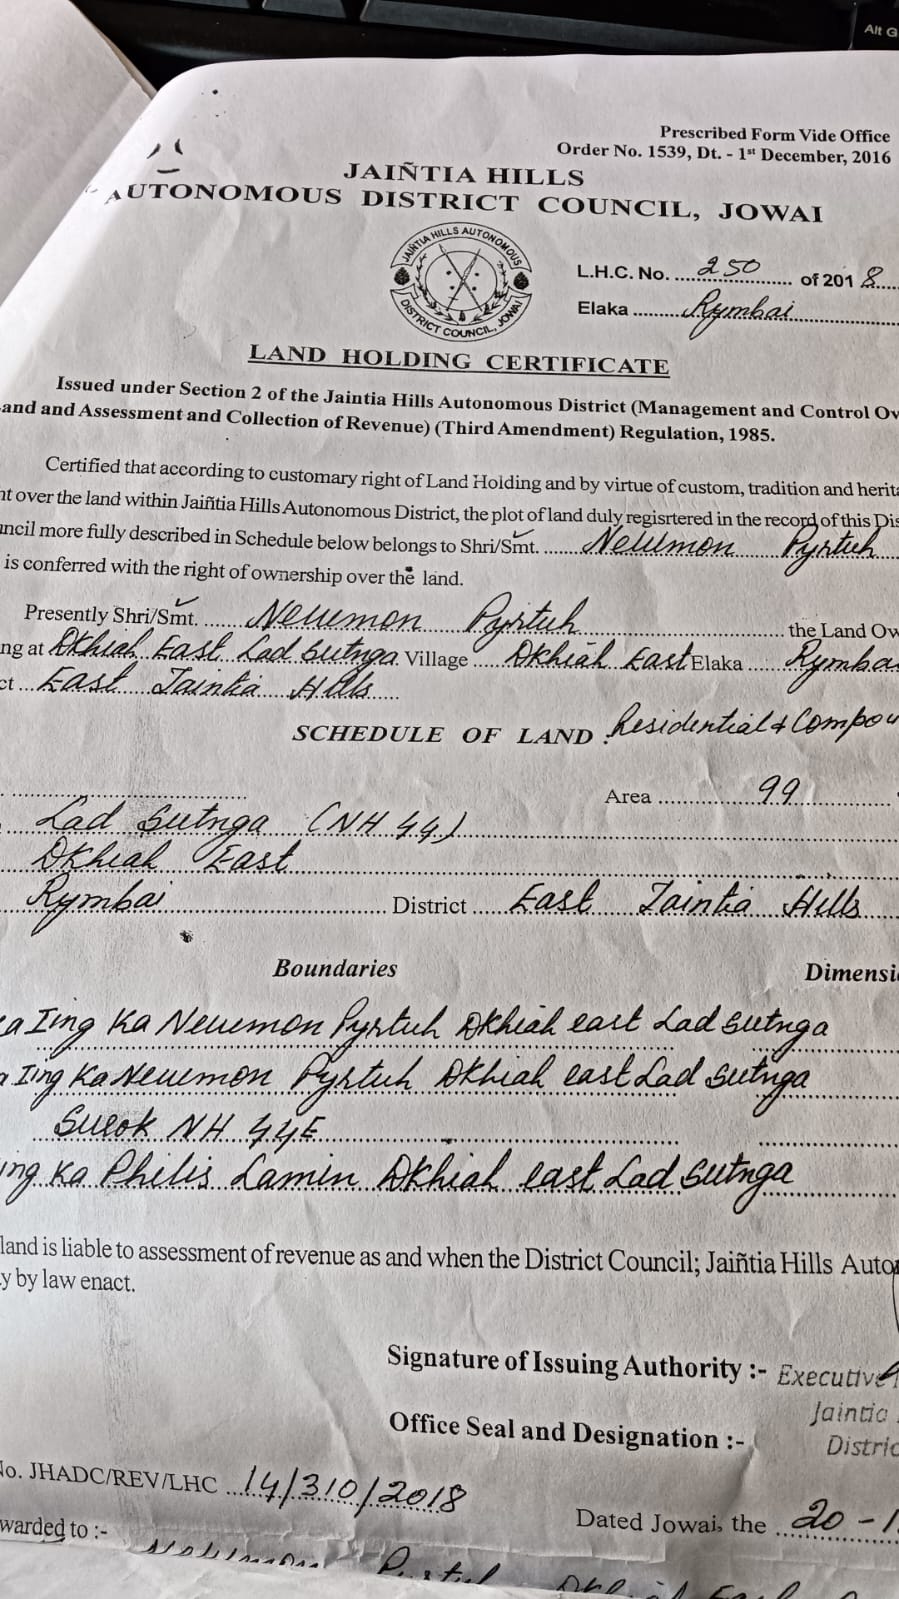 Alt G
Prescribed Form Vide Office
Order No. 1539, Dt. - 1st December, 2016
JAIÑTIA HILLS
AUTONOMOUS DISTRICT COUNCIL, JOWAI
JAIÑTIA HILLS AUTONOMOUS
DISTRICT COUNCIL, JOWAI
L.H.C. No. ....250............ of 2018....
Elaka .........Rymbai..................
LAND HOLDING CERTIFICATE
Issued under Section 2 of the Jaintia Hills Autonomous District (Management and Control Ov
and and Assessment and Collection of Revenue) (Third Amendment) Regulation, 1985.
Certified that according to customary right of Land Holding and by virtue of custom, tradition and herita
nt over the land within Jaiñtia Hills Autonomous District, the plot of land duly regisrtered in the record of this Dis
uncil more fully described in Schedule below belongs to Shri/Smt. .......Neuimon Pyrtuh
is conferred with the right of ownership over the land.
Presently Shri/Smt. ......Neuimon Pyrtuh............................ the Land Ow
ng at Dkhiah East Lad Sutnga Village .....Dkhiah East Elaka .....Rymbai
ct ...East Jaintia Hills....
SCHEDULE OF LAND : Residential & Compou
Area ..............99............
Lad Sutnga (NH 44)
Dkhiah East
Rymbai .................... District .....East Jaintia Hills
Boundaries Dimensi
a Iing Ka Neuimon Pyrtuh Dkhiah east Lad Sutnga
Iing Ka Neuimon Pyrtuh Dkhiah east Lad Sutnga
Surok NH 44E
ing Ka Philis Lamin Dkhiah east Lad Sutnga
land is liable to assessment of revenue as and when the District Council; Jaiñtia Hills Auto
y by law enact.
Signature of Issuing Authority :- Executive
Jaintia
Office Seal and Designation :- Distric
No. JHADC/REV/LHC ...14/310/2018
Dated Jowai, the ....20-1
warded to :-